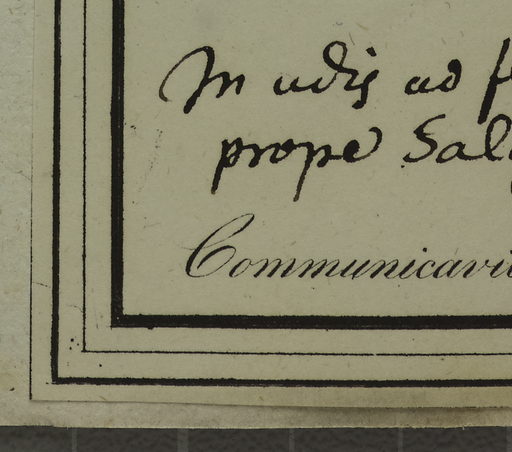 In udis ad f
prope Sal
Communicavi